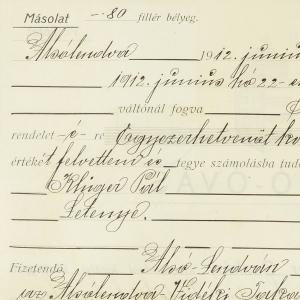 Másolat -·80 fillér bélyeg.
Alsólendva 1912. június
1912. június hó 22-
váltónál fogva
rendelet -é- re Egyezerhetvenöt ko
értékét felvettem és tegye számolásba tud
Klüger Pál
Letenye.
Fizetendő Alsó-Lendván
az Alsólendva-Vidéki Taka